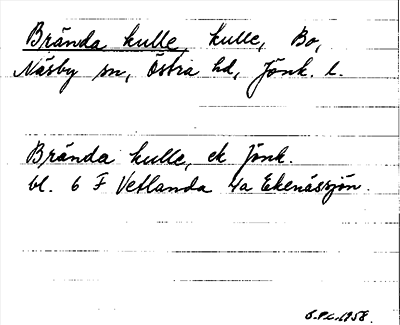 Brända kulle, kulle, Bo,
Näsby sn, Östra hd, Jönk. l.
Brända kulle, ek Jönk.
bl. 6 F Vetlanda 4a Ekenässjön.
1958.